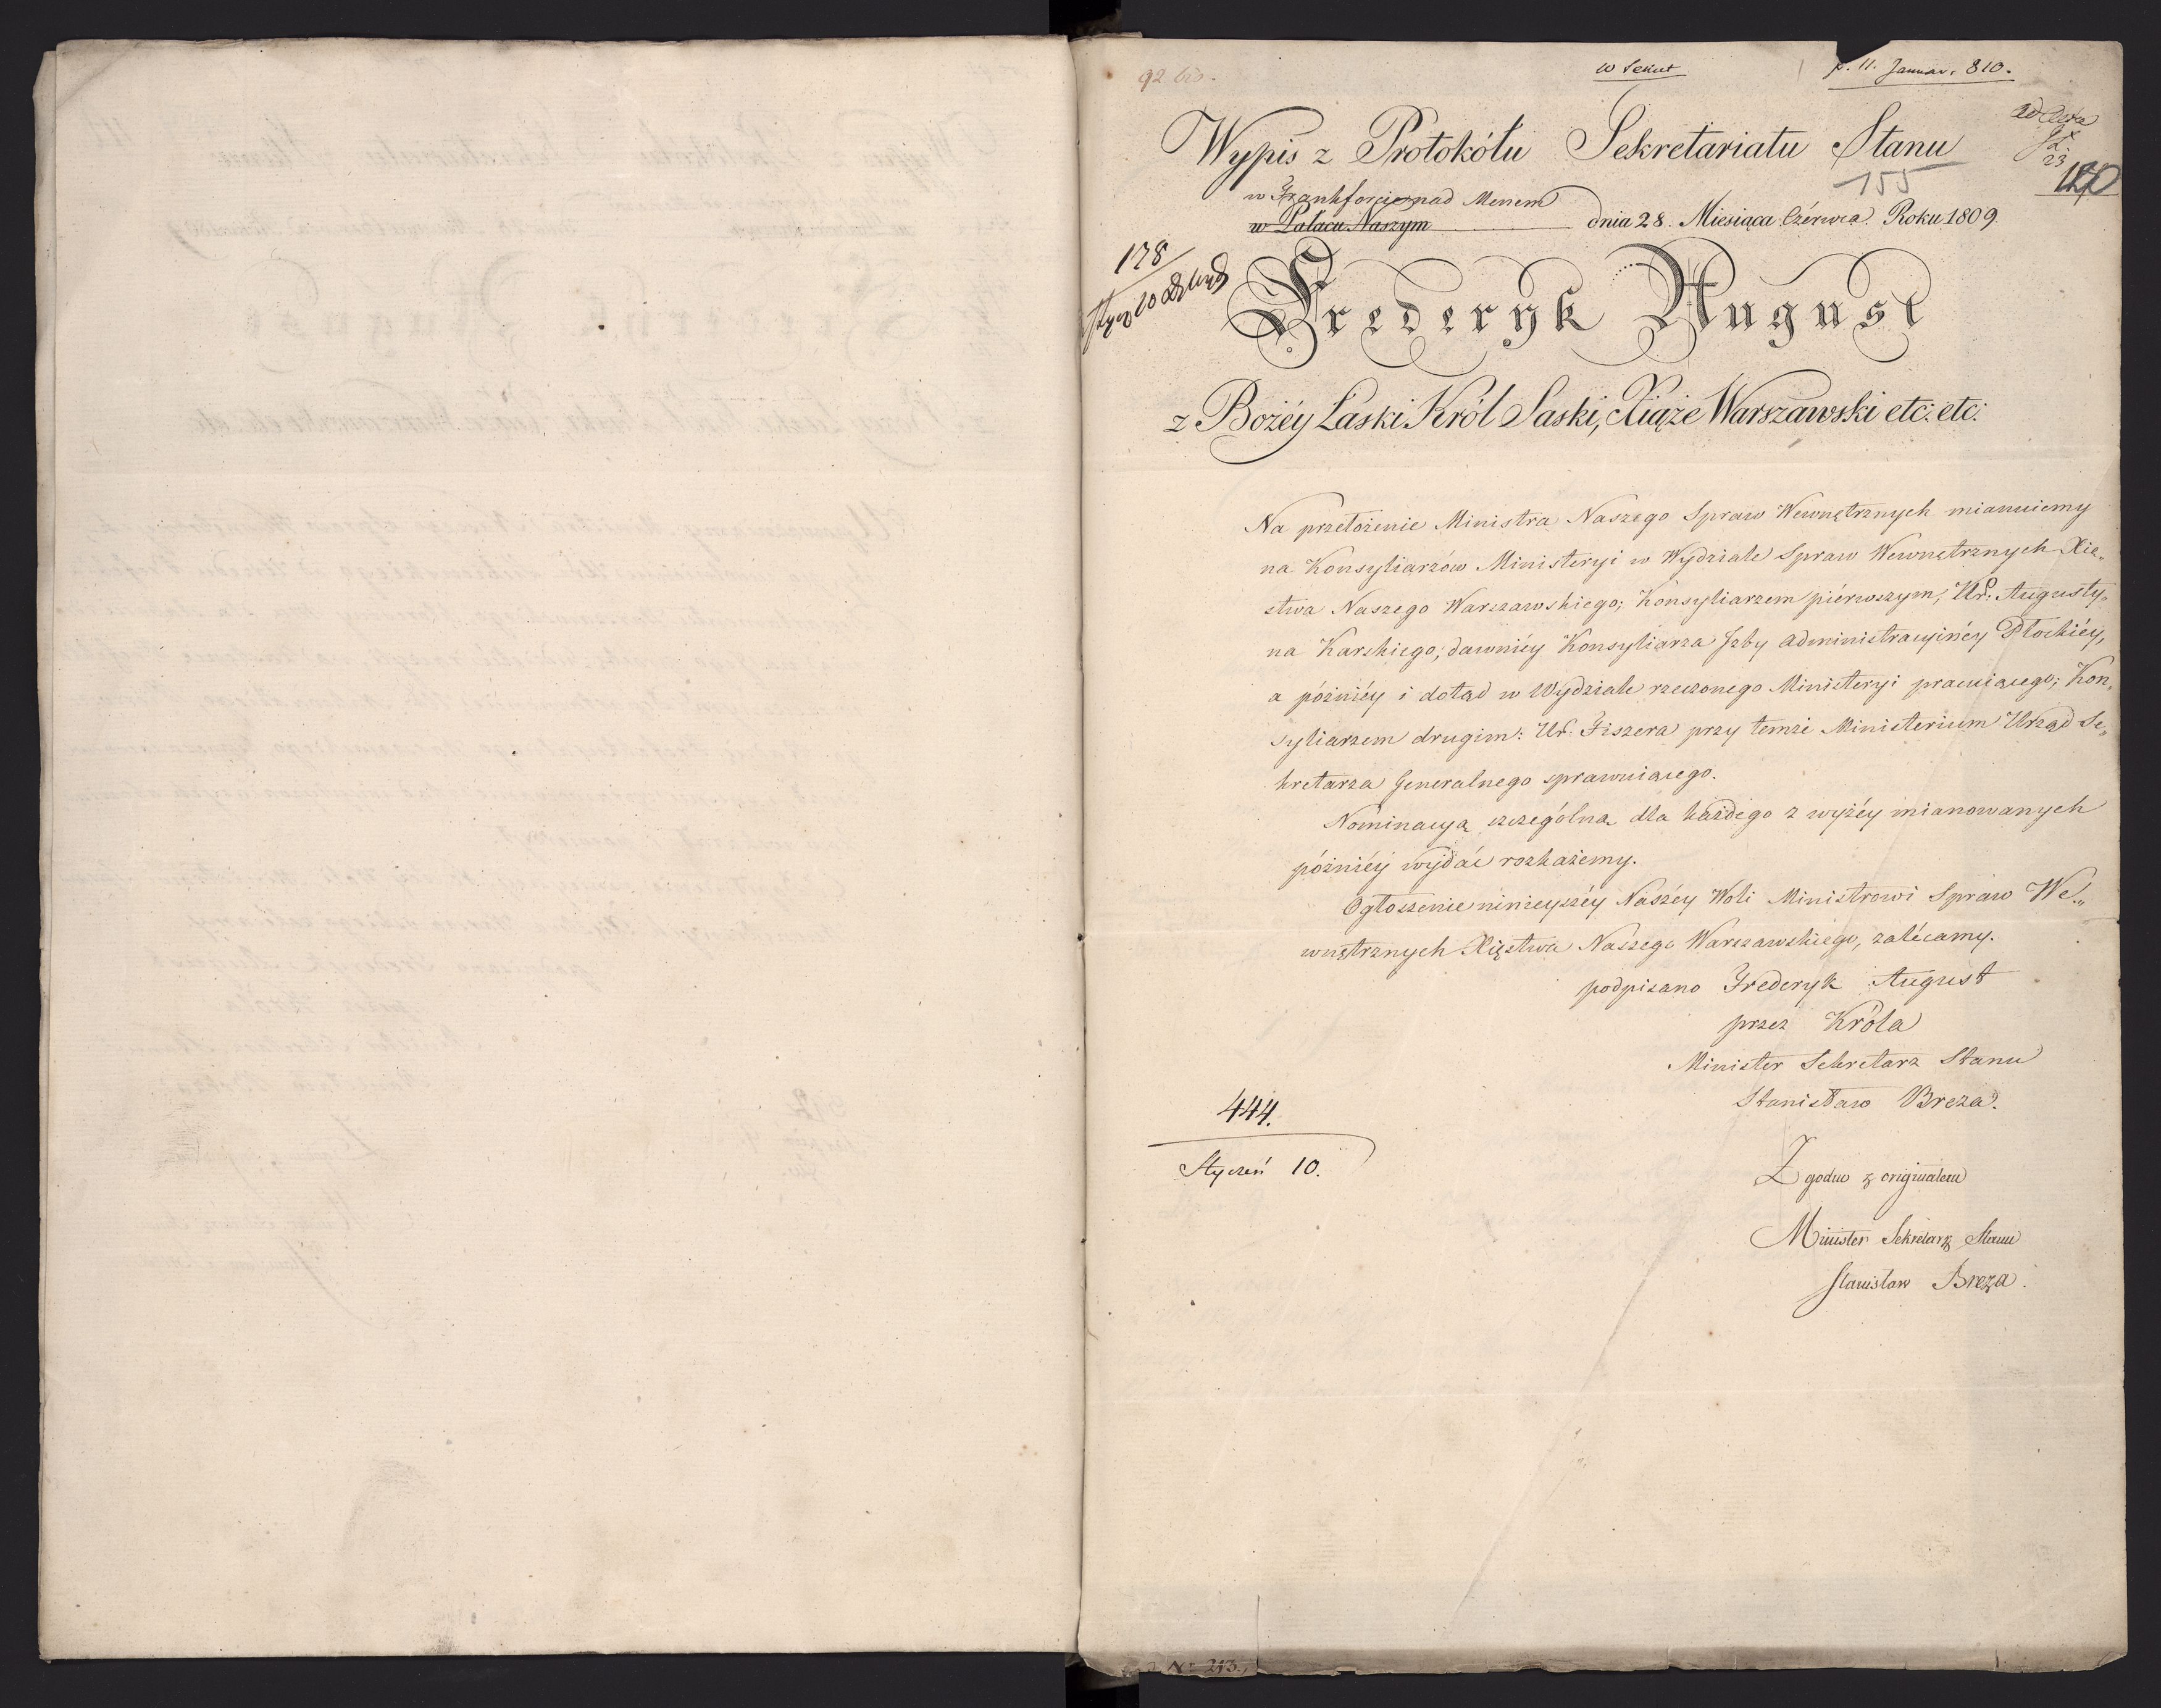 92 bis.
p. 11. Januar. 810.
Wypis z Protokółu Sekretariatu Stanu
155
w Frankforcie nad Menem
w Pałacu Naszym dnia 28. Miesiąca Czérwca Roku 1809.
178
Frederyk August
z Bożéy Łaski Król Saski, Xiąże Warszawski etc: etc:
Na przełożenie Ministra Naszego Spraw Wewnętrznych mianuiemy
na Konsyliarzów Ministeryi w Wydziale Spraw Wewnętrznych Xię„
stwa Naszego Warszawskiego; Konsyliarzem piérwszym, Ur. Augusty„
na Karskiego, dawniéy Konsyliarza Jzby administracyinéy Płockiéy,
a późniéy i dotąd w Wydziale rzeczonego Ministeryi pracuiącego; Kon„
syliarzem drugim: Ur. Fiszera przy temże Ministerium Urząd Se„
kretarza Generalnego sprawuiącego.
Nominacyą szczególną dla każdego z wyżéy mianowanych
późniéy wydać rozkażemy.
Ogłoszenie ninieyszéy Naszéy Woli Ministrowi Spraw We„
wnętrznych Xięstwa Naszego Warszawskiego, zalécamy.
podpisano Frederyk August
przez Króla
Minister Sekretarz Stanu
Stanisław Breza.
444.
Styczeń 10.
Zgodno z originałem
Minister Sekretarz Stanu
Stanisław Breza.
No 213.